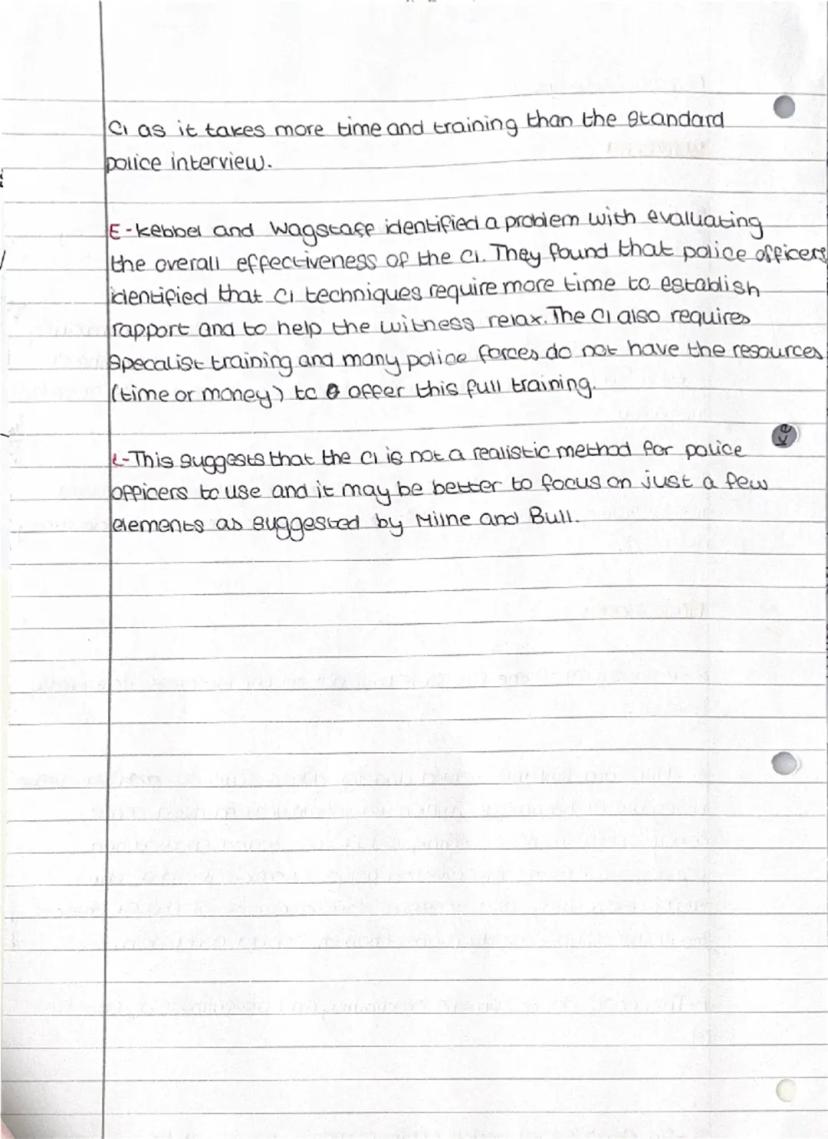 CI as it takes more time and training than the standard
police interview.
E-kebbel and Wagstaff identified a problem with evaluating
the overall effectiveness of the CI. They found that police officers
identified that CI techniques require more time to establish
rapport and to help the witness relax. The CI also requires
specalist training and many police forces do not have the resources
(time or money) to offer this full training.
L-This suggests that the CI is not a realistic method for police
officers to use and it may be better to focus on just a few
elements as suggested by Milne and Bull.